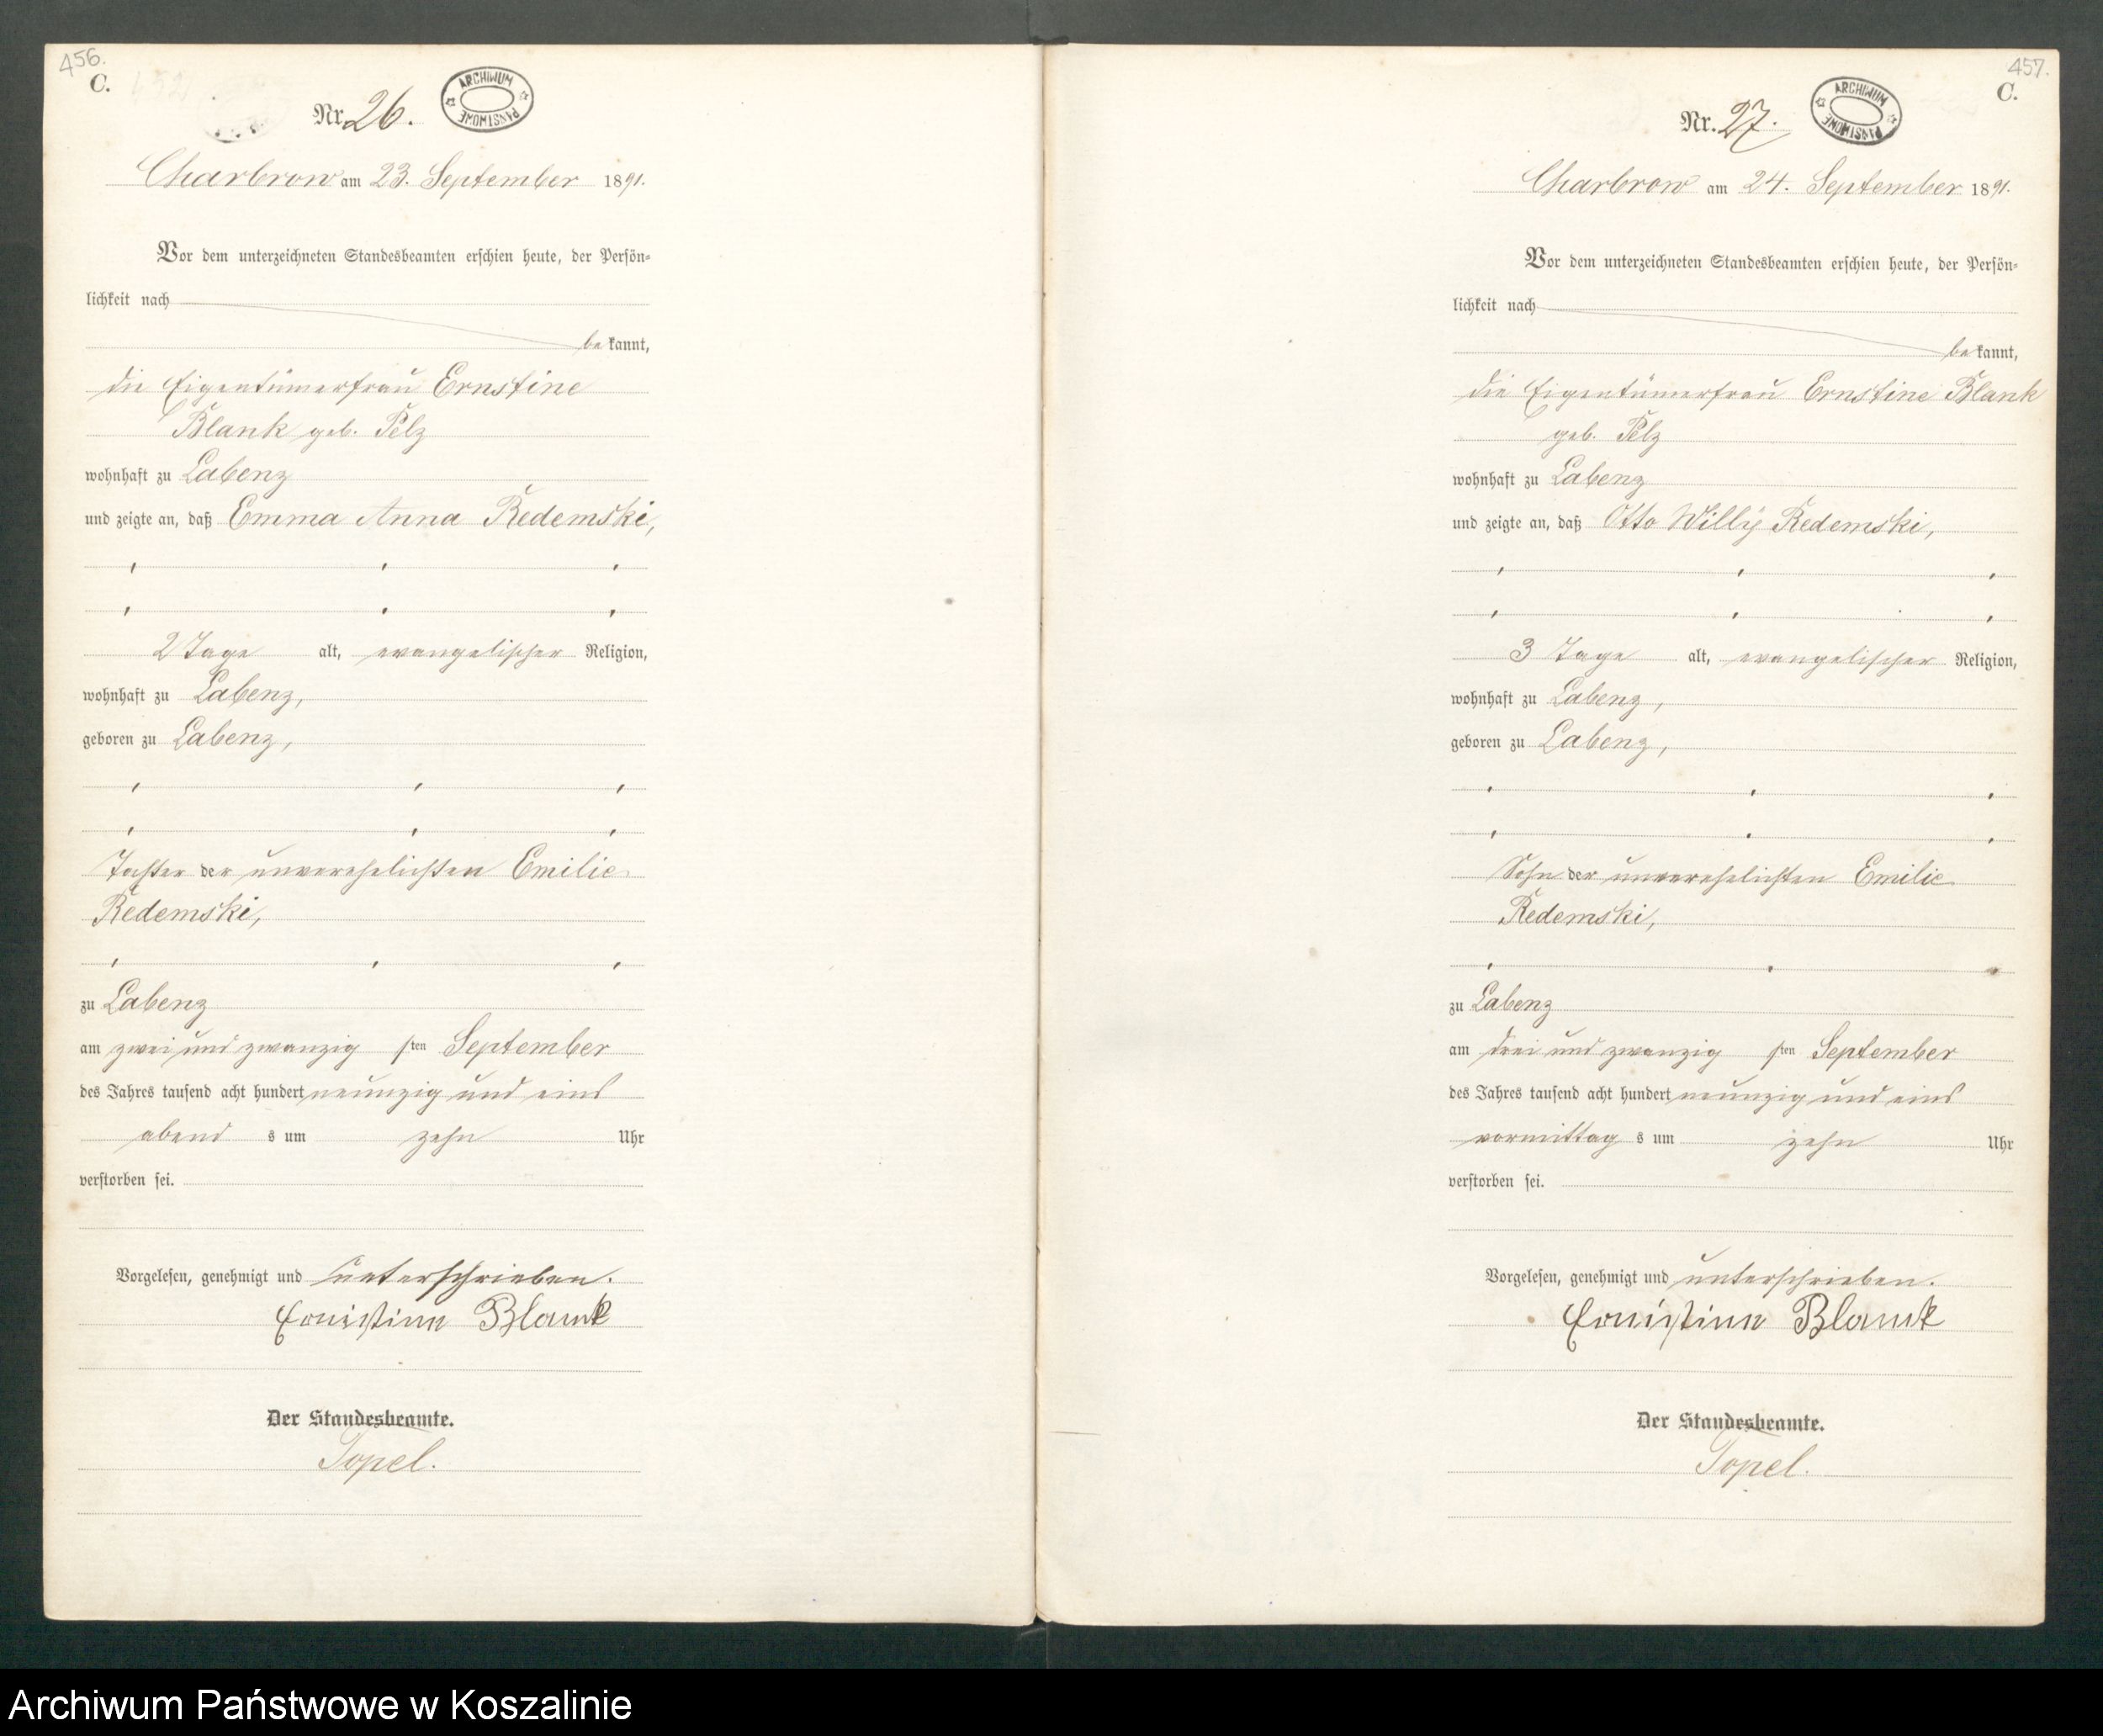 456.
C.
Nr. 26.
ARCHIWUM
PAŃSTWOWE
Charbrow am 23. September 1891.
Vor dem unterzeichneten Standesbeamten erschien heute, der Persön-
lichkeit nach
bekannt,
die Eigentümerfrau Ernstine
Blank geb. Pelz
wohnhaft zu Labenz
und zeigte an, daß Emma Anna Redemski,
2 Tage alt, evangelischer Religion,
wohnhaft zu Labenz,
geboren zu Labenz,
Tochter der unverehelichten Emilie
Redemski,
zu Labenz
am zwei und zwanzigsten September
des Jahres tausend acht hundert neunzig und eins
abends um zehn Uhr
verstorben sei.
Vorgelesen, genehmigt und unterschrieben.
Ernistine Blank
Der Standesbeamte.
Topel.
457.
C.
Nr. 27.
ARCHIWUM
PAŃSTWOWE
Charbrow am 24. September 1891.
Vor dem unterzeichneten Standesbeamten erschien heute, der Persön-
lichkeit nach
bekannt,
die Eigentümerfrau Ernstine Blank
geb. Pelz
wohnhaft zu Labenz
und zeigte an, daß Otto Willy Redemski,
3 Tage alt, evangelischer Religion,
wohnhaft zu Labenz,
geboren zu Labenz,
Sohn der unverehelichten Emilie
Redemski,
zu Labenz
am drei und zwanzigsten September
des Jahres tausend acht hundert neunzig und eins
vormittags um zehn Uhr
verstorben sei.
Vorgelesen, genehmigt und unterschrieben.
Ernistine Blank
Der Standesbeamte.
Topel.
Archiwum Państwowe w Koszalinie